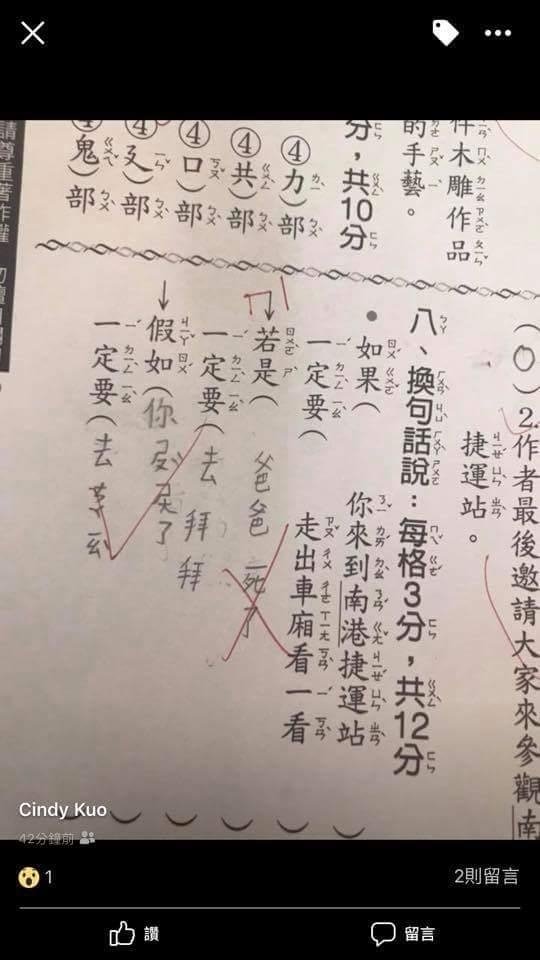 件木雕作品
的手藝。
分，共10分
④力）部
④共）部
④口）部
④廴）部
④鬼）部
（○）2.作者最後邀請大家來參觀南
捷運站。
八、換句話說：每格3分，共12分
如果（你來到南港捷運站）
一定要（走出車廂看一看）
↓若是（爸爸死了）
一定要（去拜拜）
↓假如（你了）
一定要（去
請尊重著作權
Cindy Kuo
42分鐘前
1
2則留言
讚
留言